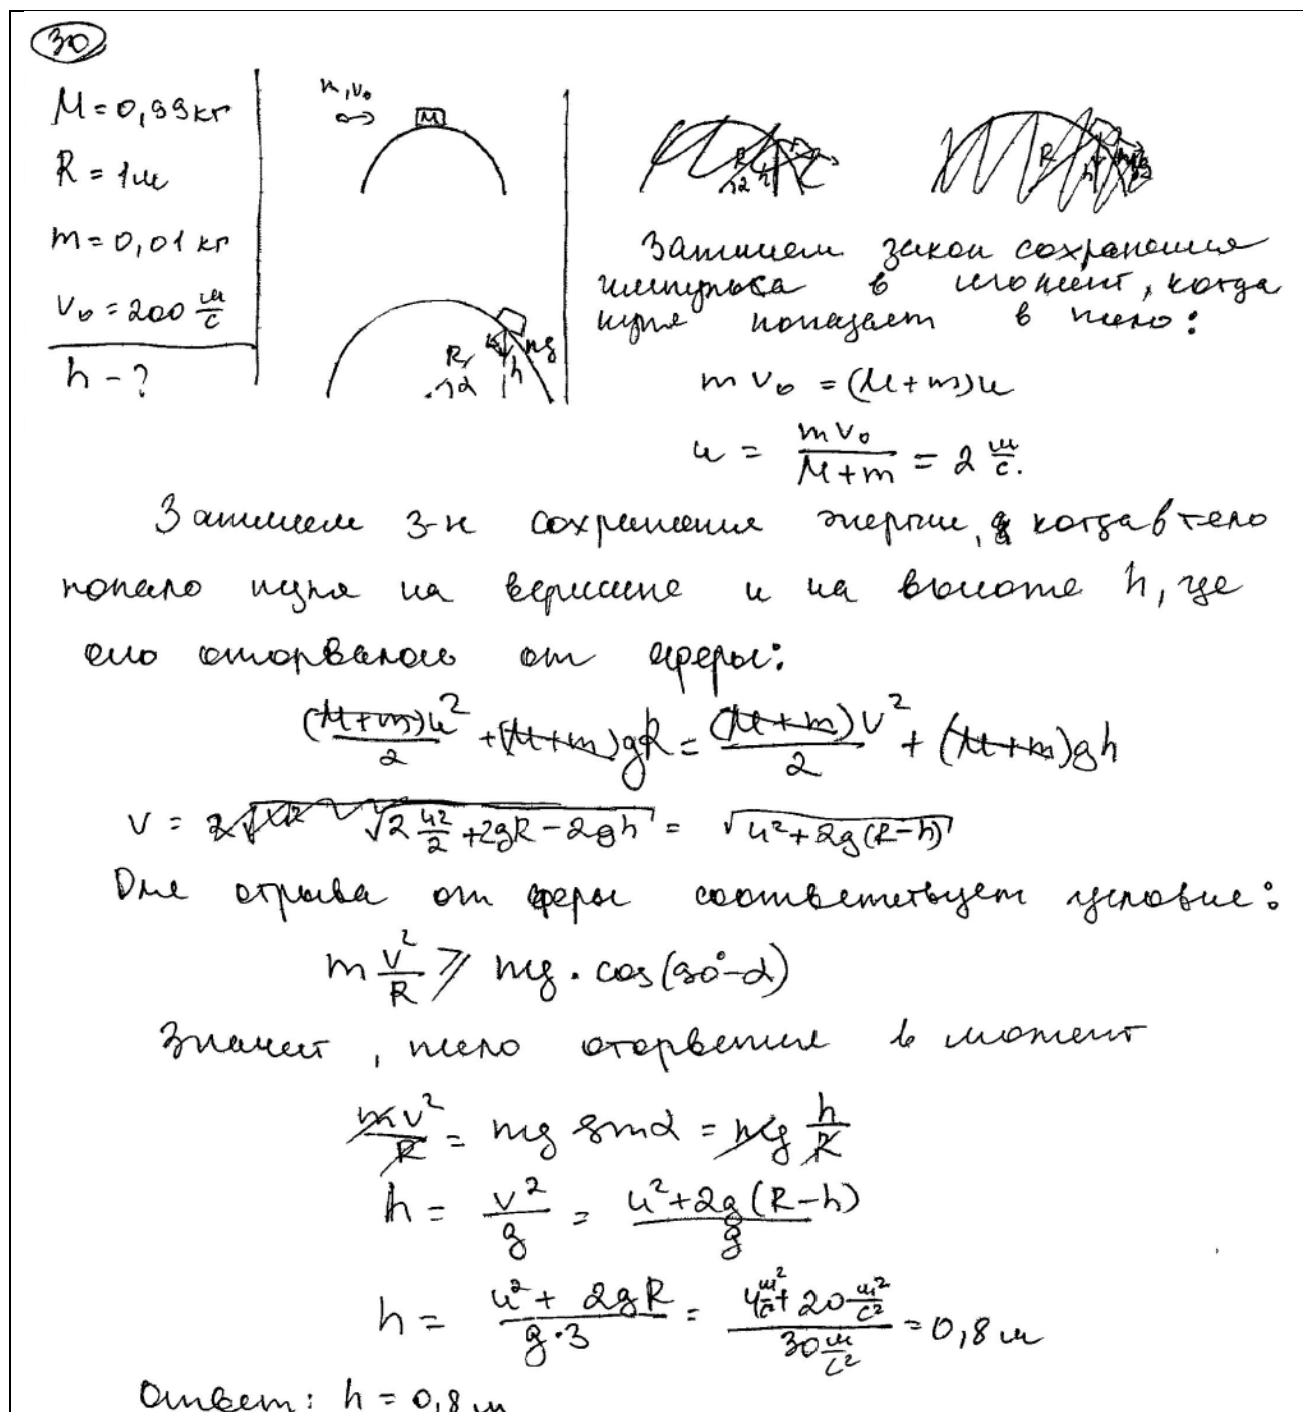 30
M = 0,99 кг
R = 1 м
m = 0,01 кг
v₀ = 200 м/с
h - ?
m, v₀
M
R
α
h
mg
Запишем закон сохранения
импульса в момент, когда
пуля попадает в тело:
m v₀ = (M+m)u
u = mv₀/(M+m) = 2 м/с.
Запишем з-н сохранения энергии, когда в тело
попало пуля на вершине и на высоте h, где
оно оторвалось от сферы:
(M+m)u²/2 + (M+m)gR = (M+m)v²/2 + (M+m)gh
v = √(2 u²/2 + 2gR - 2gh) = √(u² + 2g(R-h))
Для отрыва от сферы соответствует условие:
m v²/R ⩾ mg · cos(90°-α)
Значит, тело оторвется в момент
mv²/R = mg sinα = mg h/R
h = v²/g = (u² + 2g(R-h))/g
h = (u² + 2gR)/(g·3) = (4 м²/с² + 20 м²/с²)/(30 м/с²) = 0,8 м
Ответ: h = 0,8 м